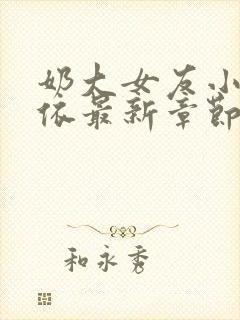 奶大女友小
依最新章節
和永秀